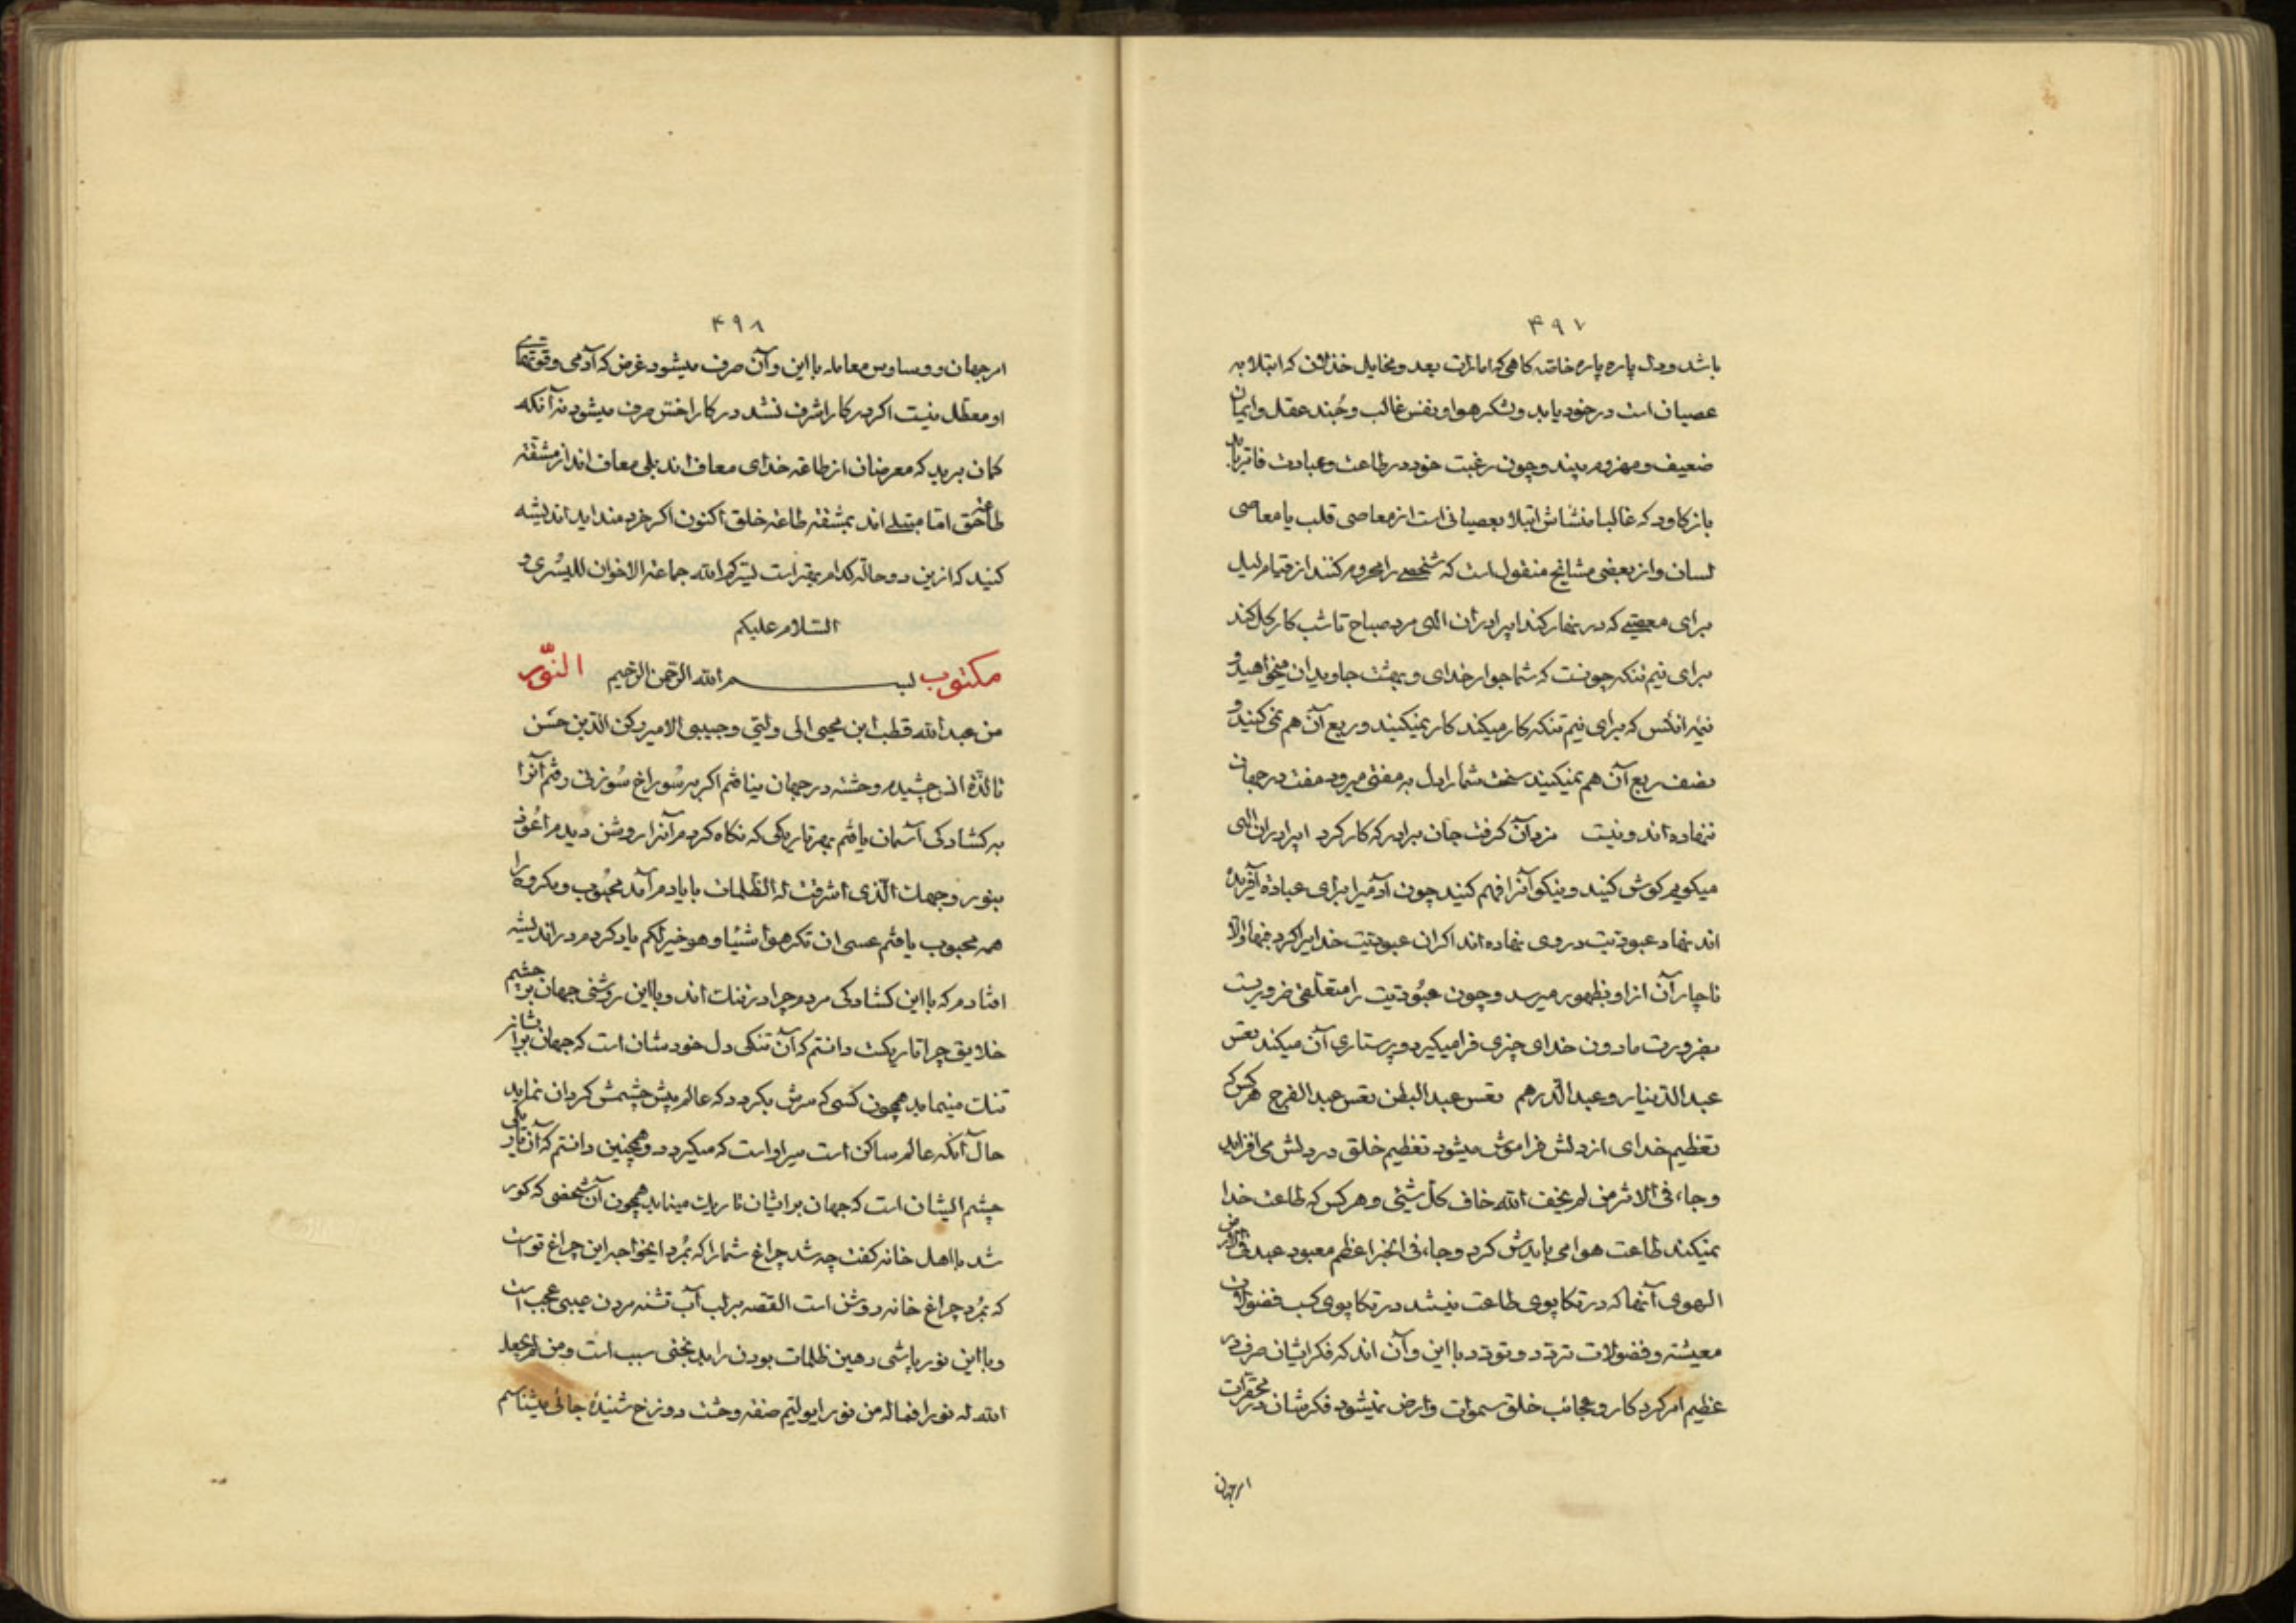 ۴۹۷
باشد و دل پاره پاره خاصه کاهی که امارات بعد و مخایل خذلان که ابتلا به
عصیان است در خود یابد و لشکر هوا و نفس غالب و جُند عقل و ایمان
ضعیف و مهزوم بیند و چون رغبت خود در طاعت و عبادت فاتر یابد
باز کاود که غالبا منشاش ابتلا بعصیانی است از معاصی قلب یا معاصی
لسان و از بعضی مشایخ منقول است که شخصی را محروم کنند از قیام لیل
برای معصیتی که در نهار کند ایبرادران اللهی مرد صباح تا شب کار کل کند
برای نیم تنکه چونست که شما جوار خدای و بهشت جاویدان میخواهید و
نیمه انکس که برای نیم تنکه کار میکند کار نمیکنید و ربع آن هم نمی کنید و
نصف ربع آن هم نمیکنید سخت شما را دل به مفتی میرود مفت در جهان
ننهاده اند و نیست مزد آن کرفت جان برادر که کار کرد ایبرادران اللهی
میکویم کوش کنید و نیکو آنرا فهم کنید چون آدمیرا برای عبادة آفریده
اند نهاد عبودیت در وی نهاده اند اکر ان عبودیت خدایرا کرد فبها و الا
ناچار آن از او بظهور میرسد و چون عبُودیت را متعلقی ضروریست
بضرورت مادون خدای چیزی فرا میکیرد و پرستاری آن میکند تعس
عبد الدینار و عبد الدّرهم تعس عبد البطن تعس عبد الفرج هر کس که
تعظیم خدای از دلش فراموش میشود تعظیم خلق در دلش می افزاید
و جاء فی الاثر من لم یخف الله خاف کل شیئی و هر کس که طاعت خدا
نمیکند طاعت هوا می بایدش کرد و جاء فی الخبر اعظم معبود عبد فی الارض
الهوی آنها که در تکاپوی طاعت نیستند در تکاپوی کسب فضولات
معیشته و فضولات تردد و تودد با این و آن اند که فکر ایشان صرف در
عظیم امر کرد کار و عجائب خلق سموات و ارض نمیشود فکرشان در محقرات
امر جهان
۴۹۸
امر جهان و وساوس معامله با این و آن صرف میشود غرض که آدمی و قوتهای
او معطل نیست اکر در کار اشرف نشد در کار اخس صرف میشود نه آنکه
کمان برید که معرضان از طاعة خدای معاف اند بلی معاف اند از مشقة
طاعة حق امّا مبتلی اند بمشقة طاعة خلق اکنون اکر خردمند اید اندیشه
کنید که ازین دو حاله کدام بهتر است یسّرکم الله جماعة الاخوان للیُسری و
السّلام علیکم
مکتوب بسم الله الرّحمن الرّحیم النّور
من عبد الله قطب ابن محیی الی ولیّی و حبیبی الامیر رکن الدّین حسن
تا لذّة انس چشیدم وحشة در جهان نیافتم اکر بر سُوراخ سُوزنی رفتم آنرا
به کشادکی آسمان یافتم بهر تاریکی که نکاه کردم آنرا روشن دیدم اعُوذ
بنور وجهک الّذی اشرقت له الظلمات با یادم آمد محبُوب و مکروه را
همه محبوب یافتم عسی ان تکرهوا شیئا و هو خیر لکم یاد کردم در اندیشه
افتادم که با این کشادکی مردم چرا در تنک اند و با این روشنی جهان بر چشم
خلایق چرا تاریکست دانستم که آن تنکی دل خودشان است که جهان برایشانر
تنک مینماید همچون کسی که سرش بکردد که عالم پیش چشمش کردان نماید
حال آنکه عالم ساکن است سر او است که میکردد و همچنین دانستم که آن تاریکی
چشم ایشان است که جهان بر ایشان تاریک مینماید همچون آن شخصی که کور
شد با اهل خانه کفت چه شد چراغ شما را که بمُرد ایخواجه این چراغ تو است
که بمُرد چراغ خانه روشن است القصه بر لب آب تشنه مردن عیبی عجب است
و با این نور پاشی رهین ظلمات بودن را بدبختی سبب است و من لم یجعل
الله له نورا فما له من نور ایولیّم صفة وحشت دوزخ شنیدهٔ جائی میشناسم